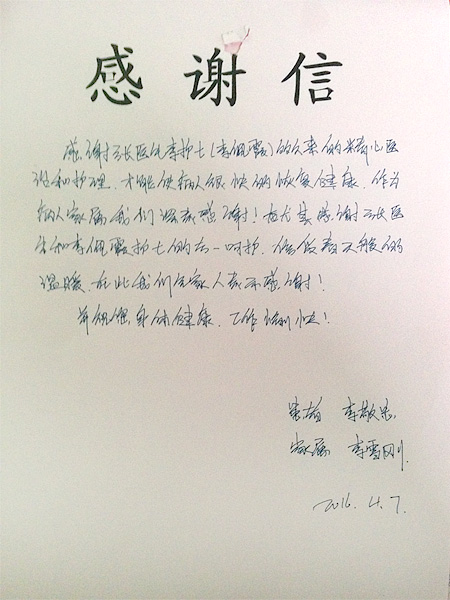 感谢信
感谢张医生李护士(李佩霞)的久来的精心医
治和护理,才能使病人很快的恢复健康。作为
病人家属我们深表感谢!在尤其感谢张医
生和李佩霞护士的 呵护,像 般的
温暖。在此我们全家人表示感谢!
并祝您身体健康,工作顺利!
患者 李敬忠
家属 李雪刚
2016.4.7.